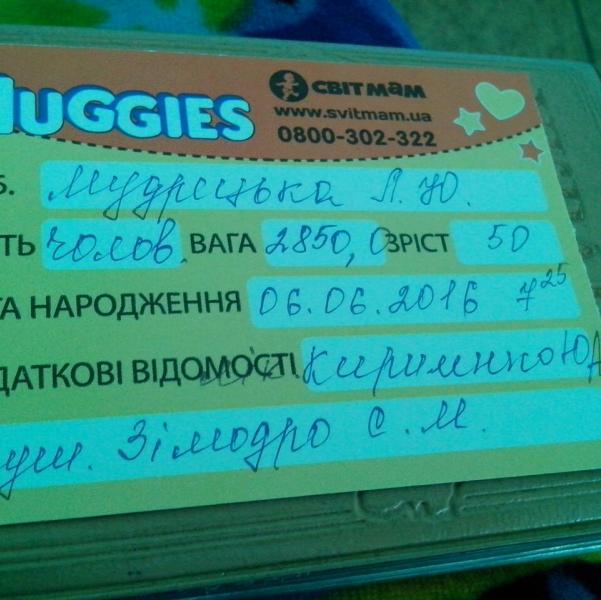 HUGGIES СВІТ МАМ
www.svitmam.ua
0800-302-322
Б. Мудрицька Л. Ю.
ТЬ чолов. ВАГА 2850,0 ЗРІСТ 50
ТА НАРОДЖЕННЯ 06.06.2016 7 25
ДАТКОВІ ВІДОМОСТІ Ю А
Зімодро С. М.